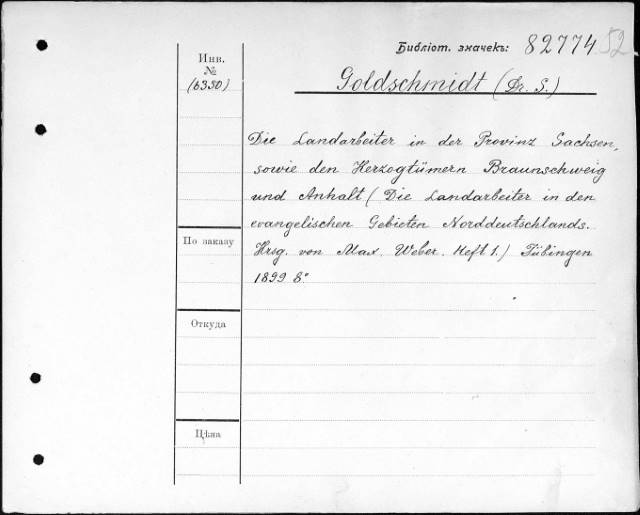 Библіот. значекъ: 82774 52
Инв.
№
(6350)
Goldschmidt (Dr. S.)
Die Landarbeiter in der Provinz Sachsen,
sowie den Herzogtümern Braunschweig
und Anhalt (Die Landarbeiter in den
evangelischen Gebieten Norddeutschlands.
Hrsg. von Max. Weber. Heft 1.) Tübingen
1899 8°
По заказу
Откуда
Цѣна